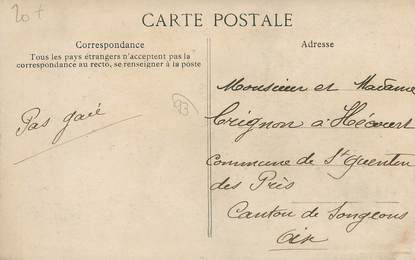 20+
CARTE POSTALE
Correspondance
Tous les pays étrangers n'acceptent pas la
correspondance au recto, se renseigner à la poste
Pas gaie
93
Adresse
Monsieur et Madame
Crignon à Hécourt
Commune de St Quentin
des Prés
Canton de Songeons
Oise